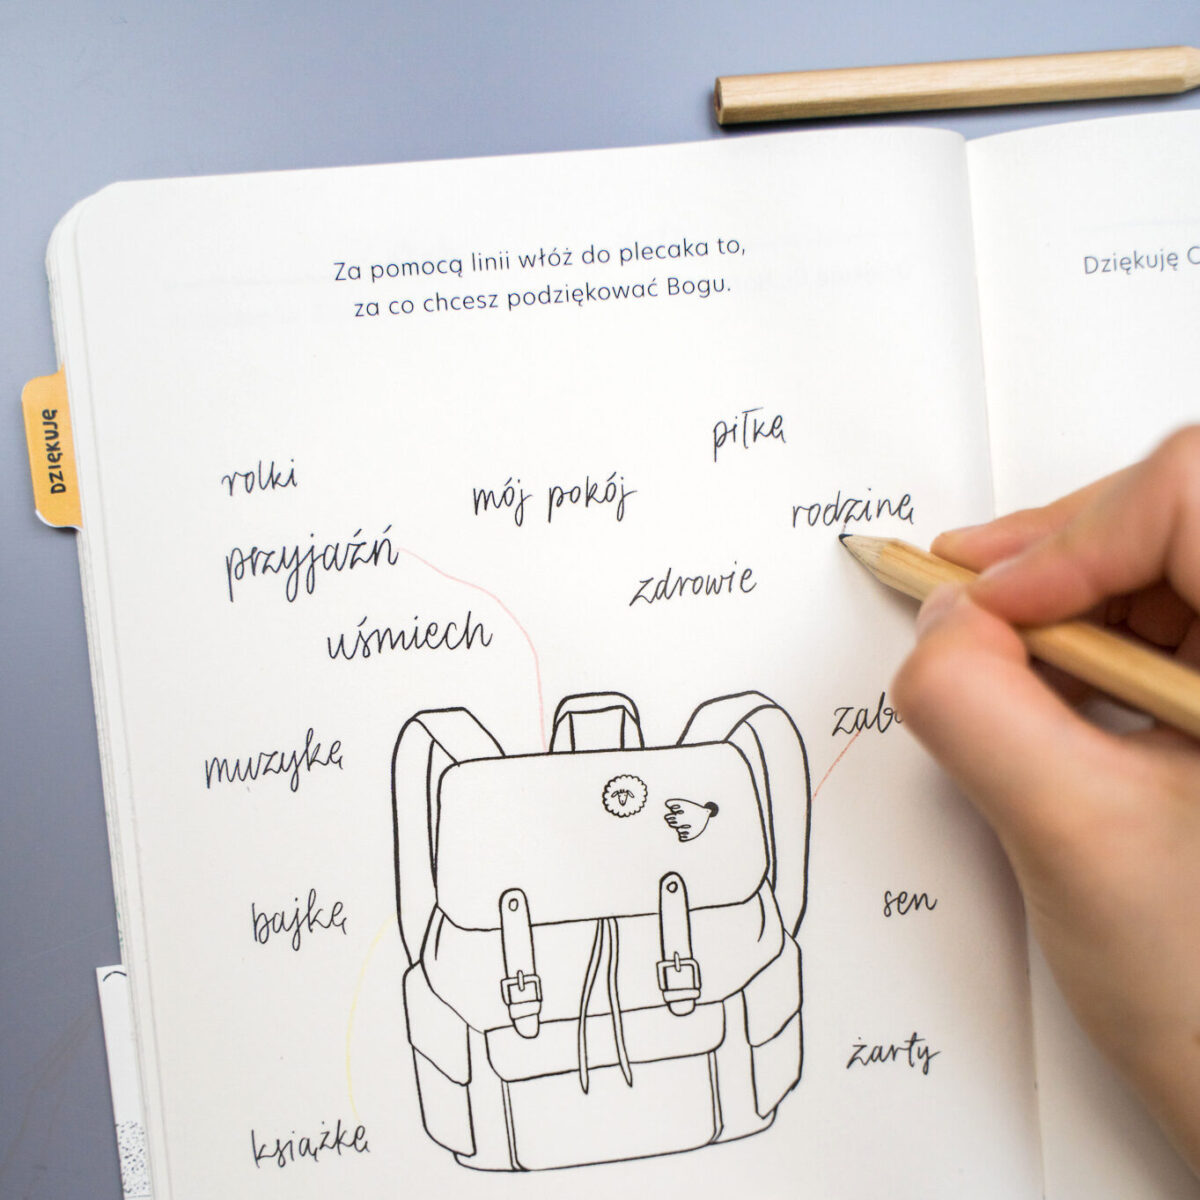 Za pomocą linii włóż do plecaka to,
za co chcesz podziękować Bogu.
Dziękuję C
DZIĘKUJĘ
piłkę
rolki
mój pokój
rodzinę
przyjaźń
zdrowie
uśmiech
zab
muzykę
bajkę
sen
żarty
książkę